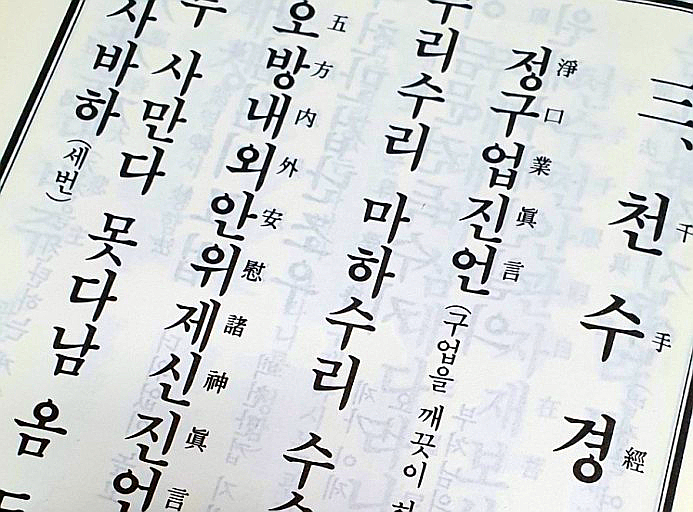 三、천수경 千手經
정구업진언 淨口業眞言 (구업을 깨끗이
수리수리 마하수리 수
오방내외안위제신진언 五方内外安慰諸神眞言
무 사만다 못다남 옴
사바하 (세번)